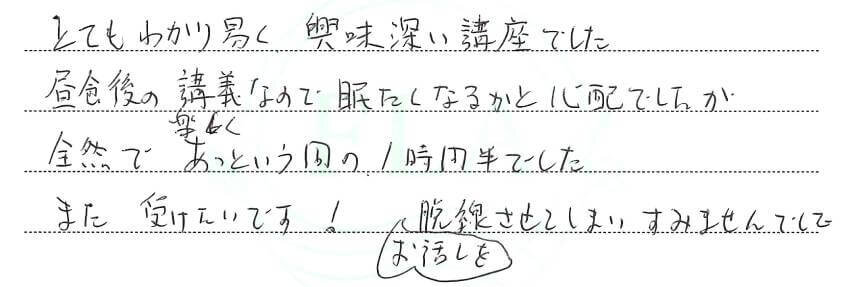 とてもわかり易く、興味深い講座でした
昼食後の講義なので眠たくなるかと心配でしたが
全然で 楽しく あっという間の1時間半でした
また 受けたいです！ お話しを 脱線させてしまいすみませんでした